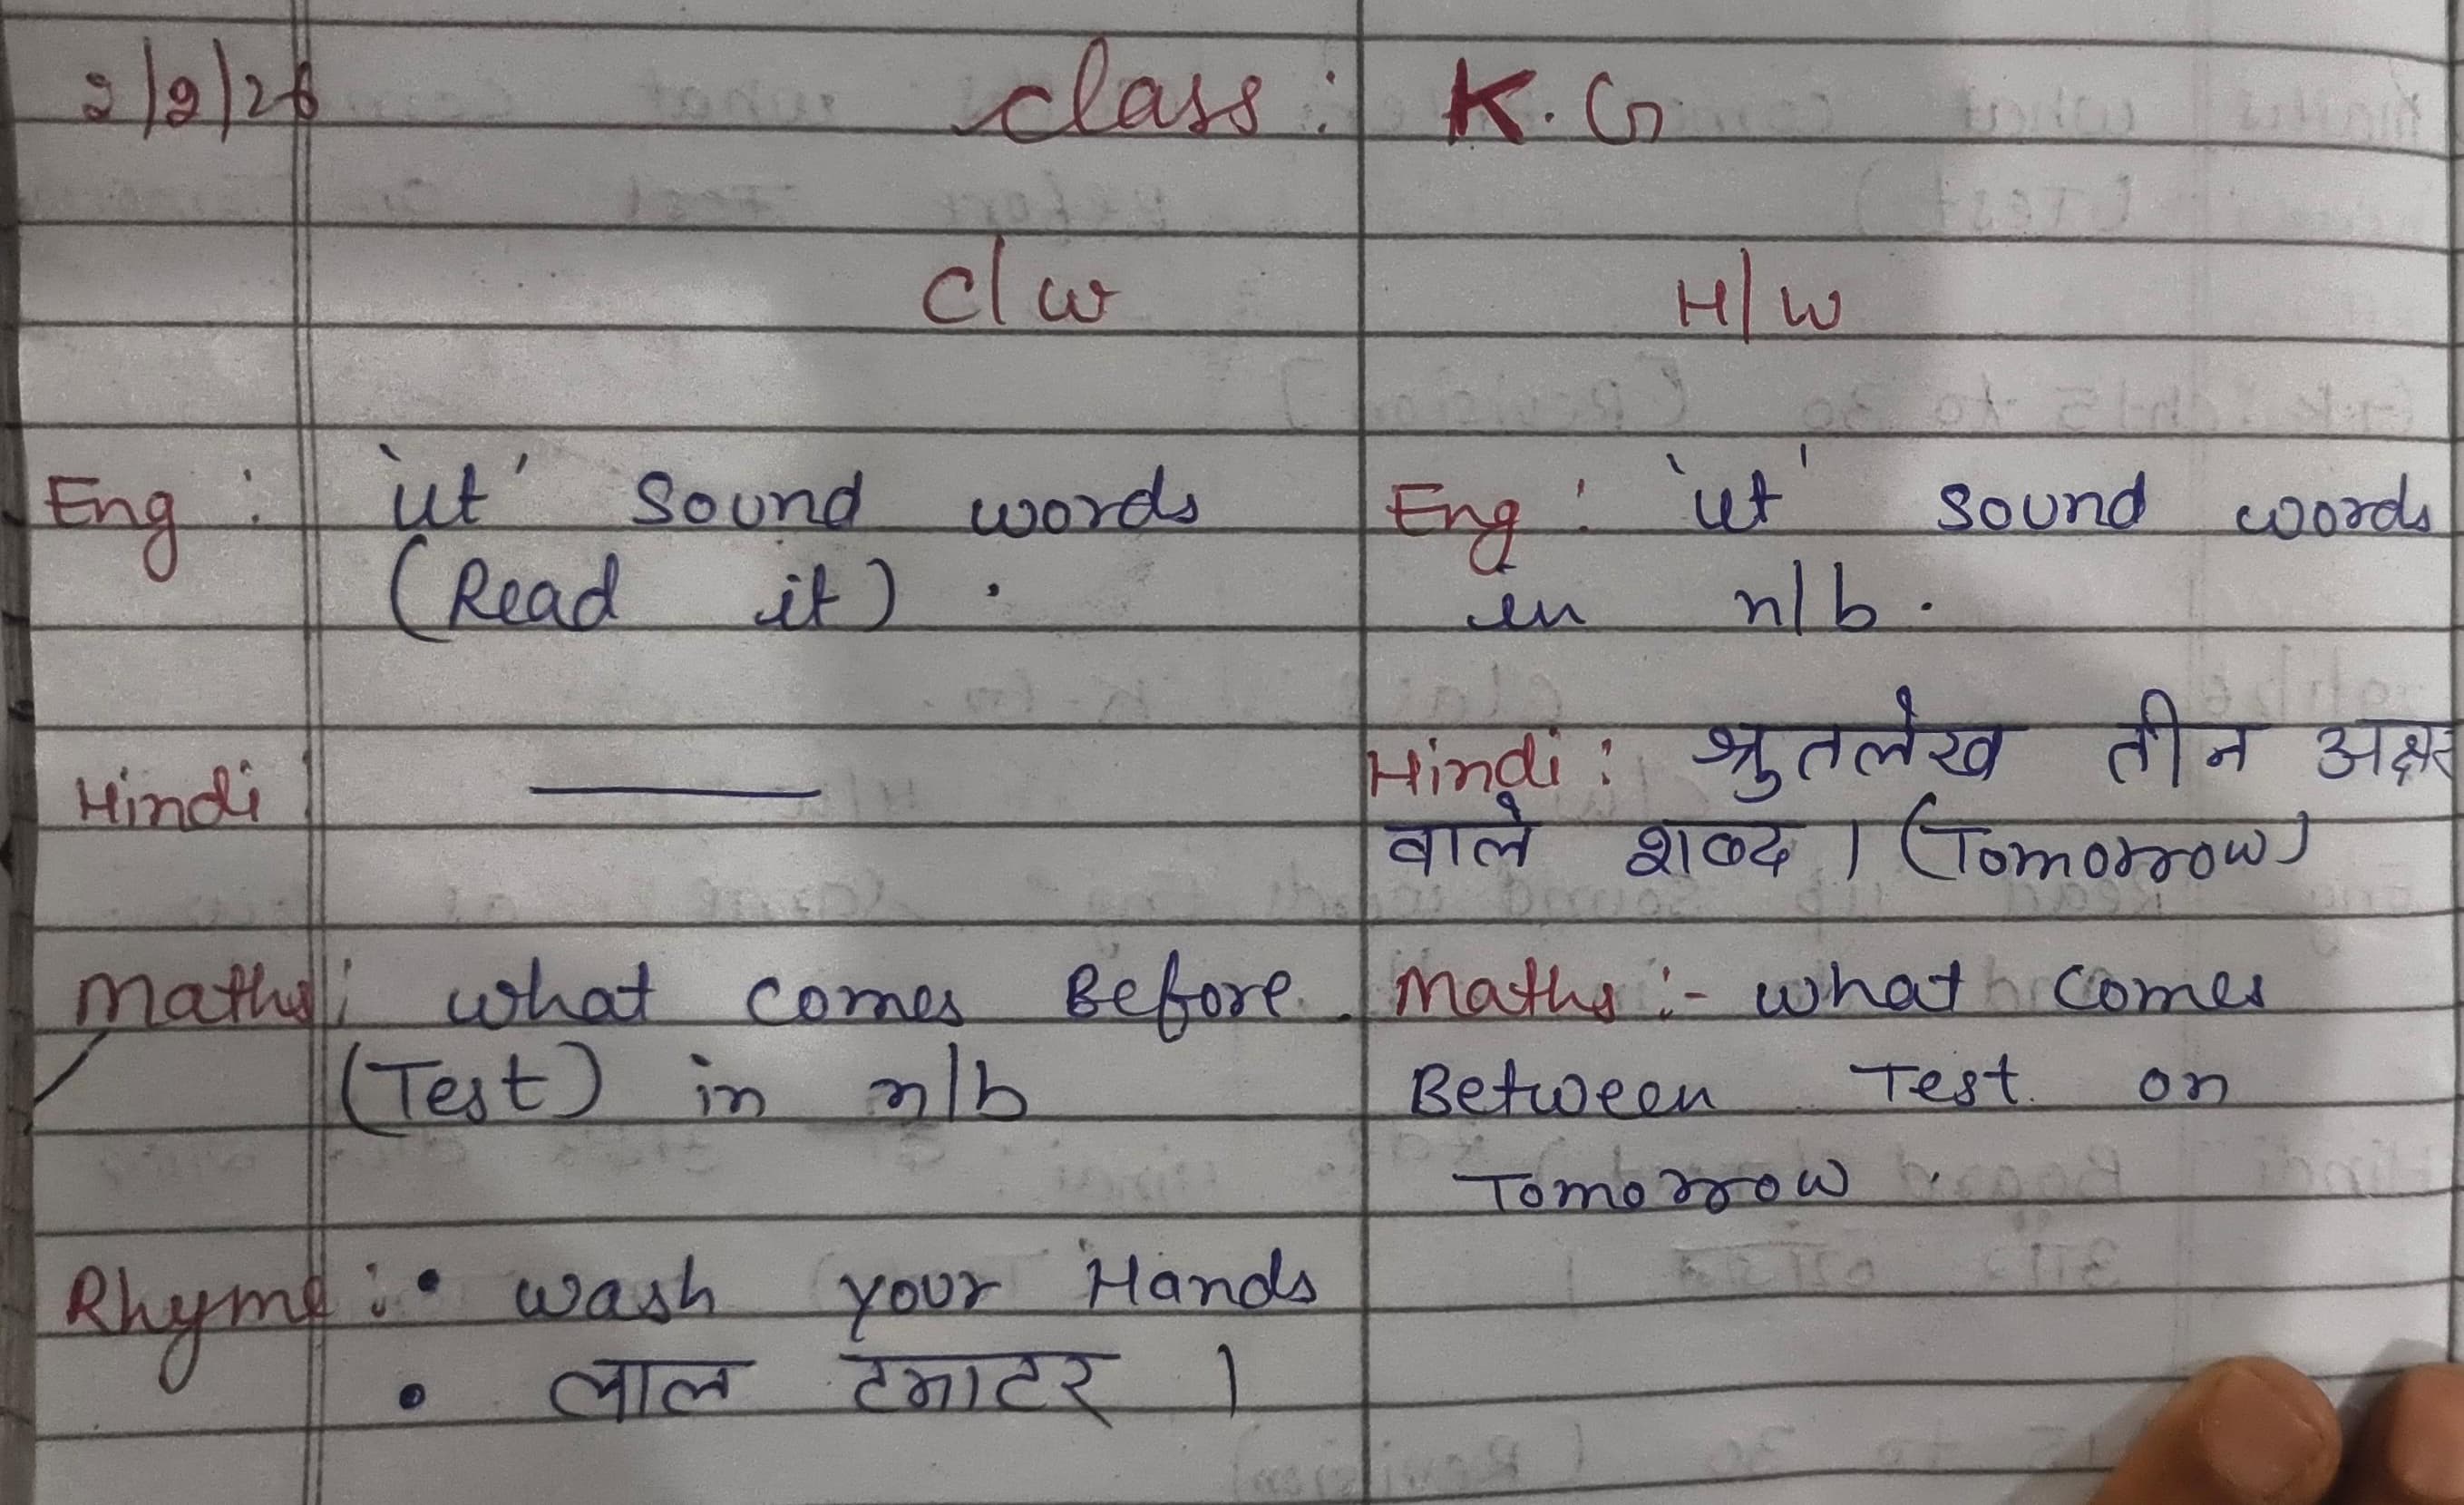 2/2/26 class : K. G
C/w H/w
Eng : 'ut' Sound words
(Read it) .
Eng : 'ut' Sound words
in n/b .
Hindi : ———
Hindi : श्रुतलेख तीन अक्षर
वाले शब्द । (Tomorrow)
Maths : what comes Before .
(Test) in n/b
Maths :- what comes
Between Test on
Tomorrow .
Rhyme : • wash your Hands
• लाल टमाटर ।